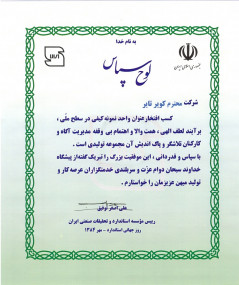 به نام خدا
جمهوری اسلامی ایران
لوح سپاس
شرکت محترم کویر تایر
کسب افتخار عنوان واحد نمونه کیفی در سطح ملی ،
برآیند لطف الهی ، همت والا و اهتمام بی وقفه مدیریت آگاه و
کارکنان تلاشگر و پاک اندیش آن مجموعه تولیدی است .
با سپاس و قدردانی ، این موفقیت بزرگ را تبریک گفته از پیشگاه
خداوند سبحان دوام عزت و سربلندی خدمتگزاران عرصه کار و
تولید میهن عزیزمان را خواستارم .
علی اصغر توفیق
رییس مؤسسه استاندارد و تحقیقات صنعتی ایران
روز جهانی استاندارد - مهر ۱۳۸۴